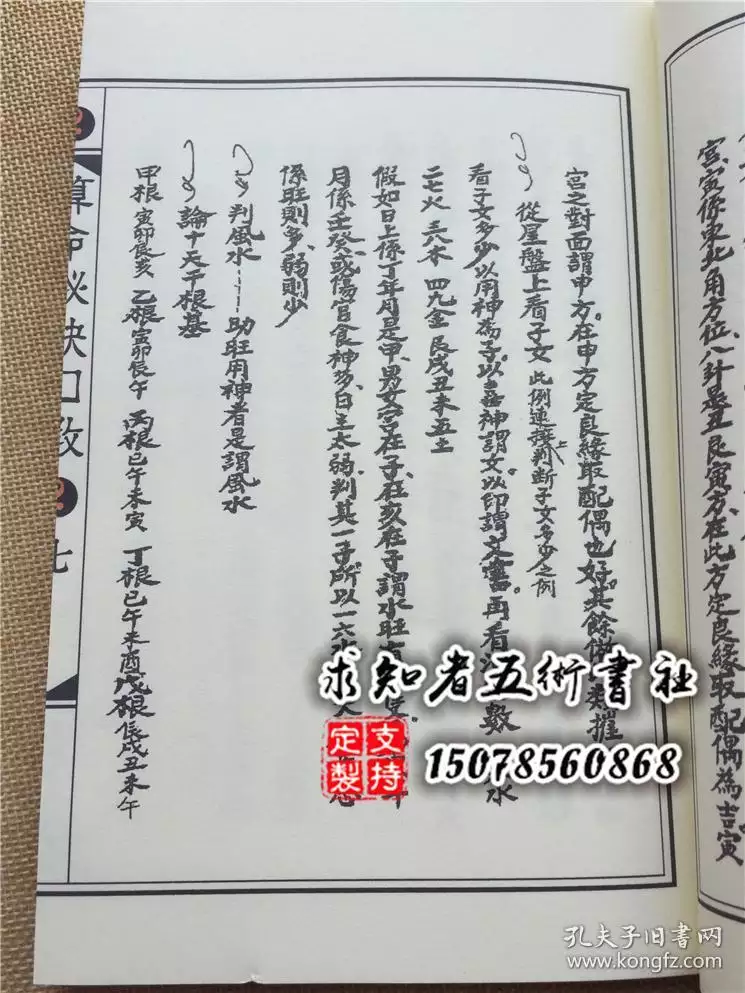 宫寅係東北角方位八針是丑艮寅方在此方定良緣取配偶為吉寅
宮之對面謂申方。在申方定良緣取配偶也好。其餘
從星盤上看子女 此例連接上判断子女多少之例
看子女多少以用神為子。以喜神謂女以印謂文書。再看 數 水
二七火 三八木 四九金 艮戌丑未五土
假如日上係丁年月是甲、男女宮在子、在亥在子謂水旺
月係壬癸、或傷官食神多、日主太弱、判其一子所以一六水
係旺則多、弱則少
判風水——助旺用神者是謂風水
論十天干根基
甲根 寅卯辰亥 乙根 寅卯辰午 丙根 巳午未寅 丁根 巳午未酉 戊根 辰戌丑未午
算命秘訣口教
七
求知者五術書社
支持定製
15078560868
孔夫子旧書网
www.kongfz.com